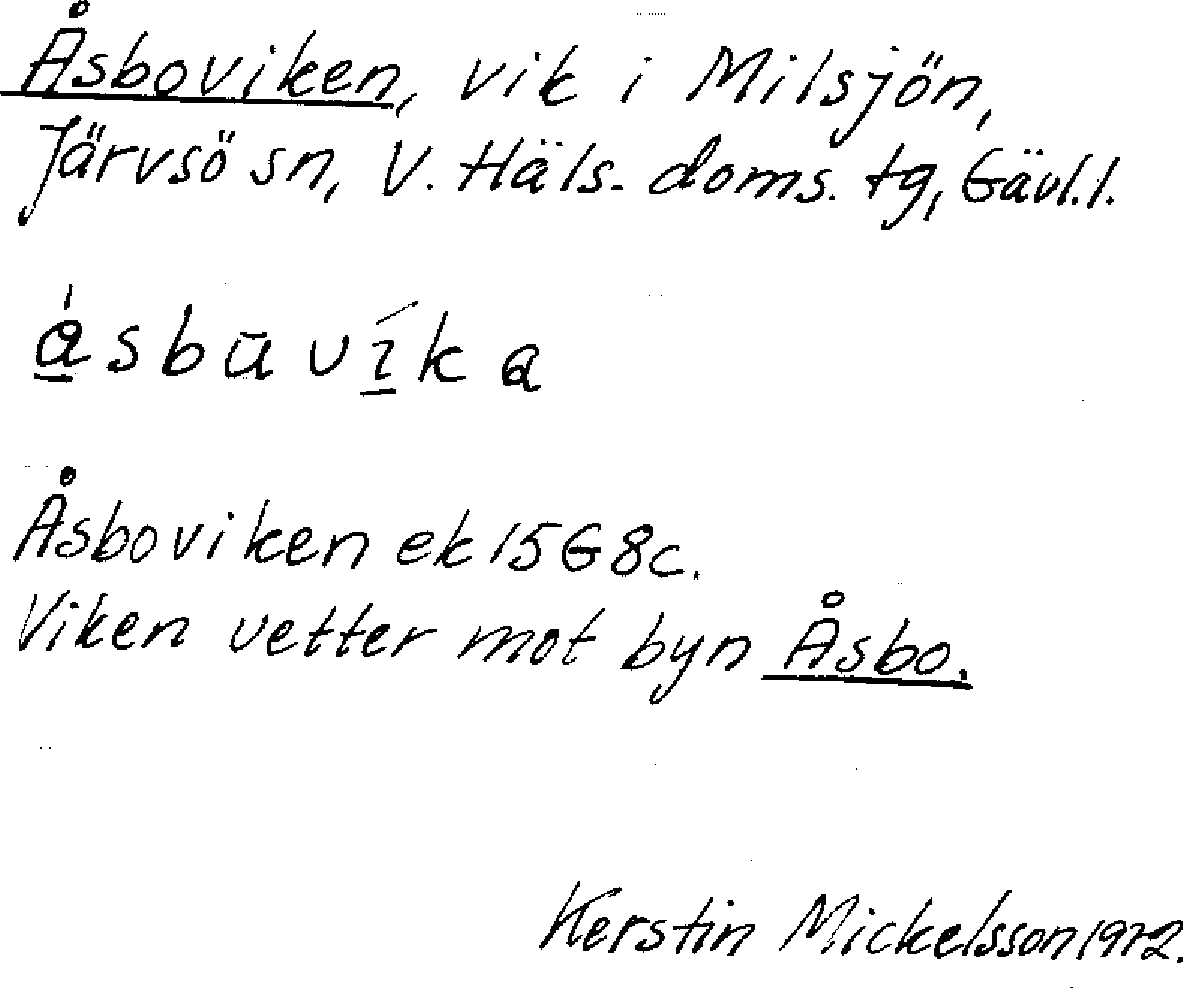 Åsboviken, vik i Milsjön,
Järvsö sn, V. Häls. doms. tg, Gävl.l.
ásbūvíka
Åsboviken ek 15G 8c.
Viken vetter mot byn Åsbo.
Kerstin Mickelsson 1972.